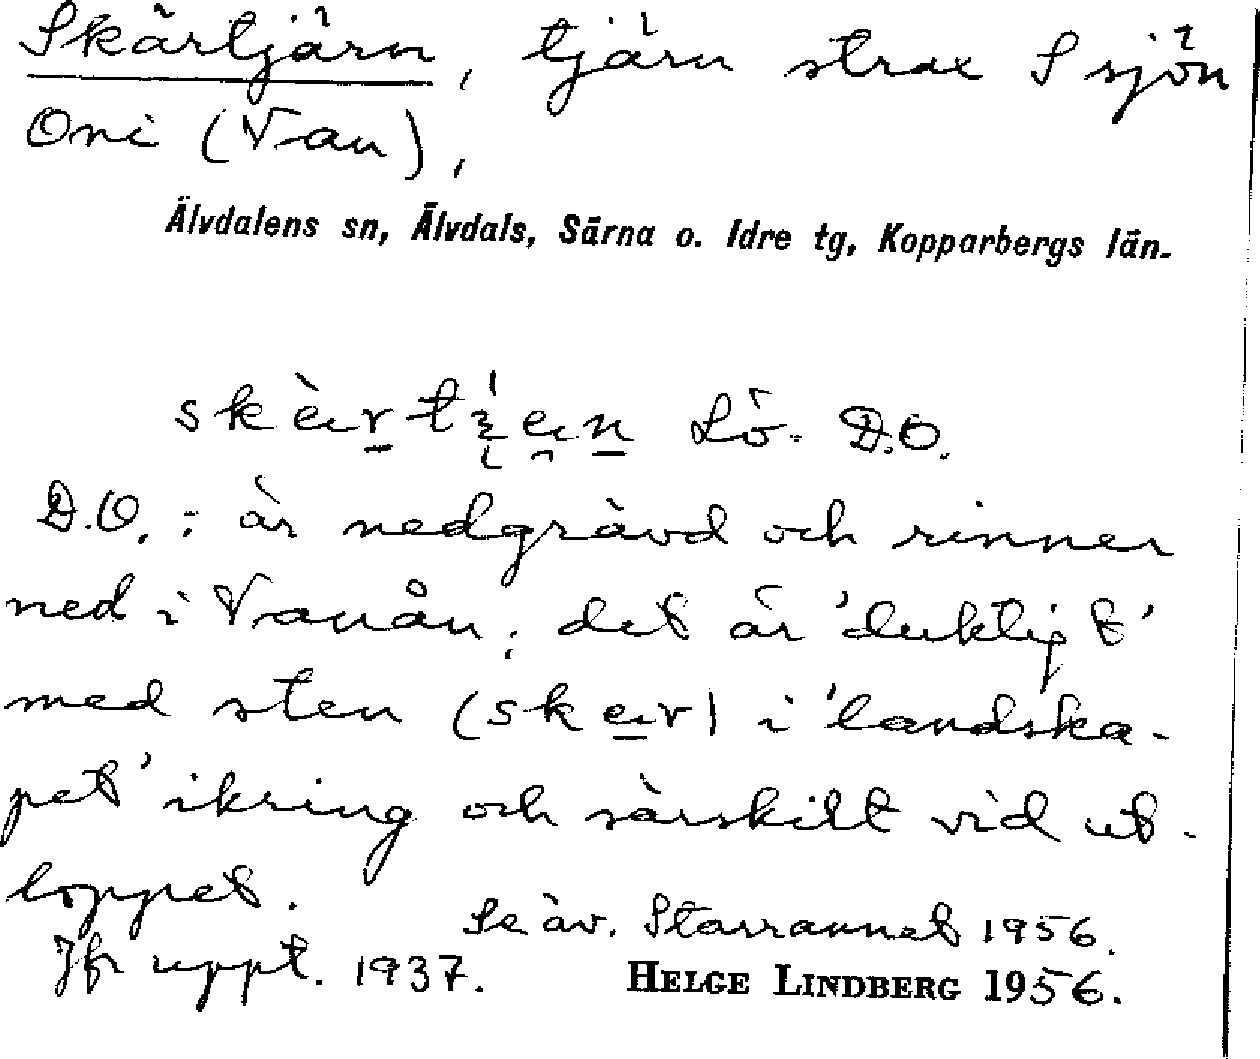 Skärtjärn, tjärn strax S sjön
Oni (Van),
Älvdalens sn, Älvdals, Särna o. Idre tg, Kopparbergs län.
Lö. D.O.
D.O.: är nedgrävd och rinner
ned i Vanån; det är 'duktigt'
med sten (skær) i 'landska-
pet' ikring och särskilt vid ut-
loppet.
Se äv. Starrannet 1956.
Jfr uppt. 1937.
HELGE LINDBERG 1956.